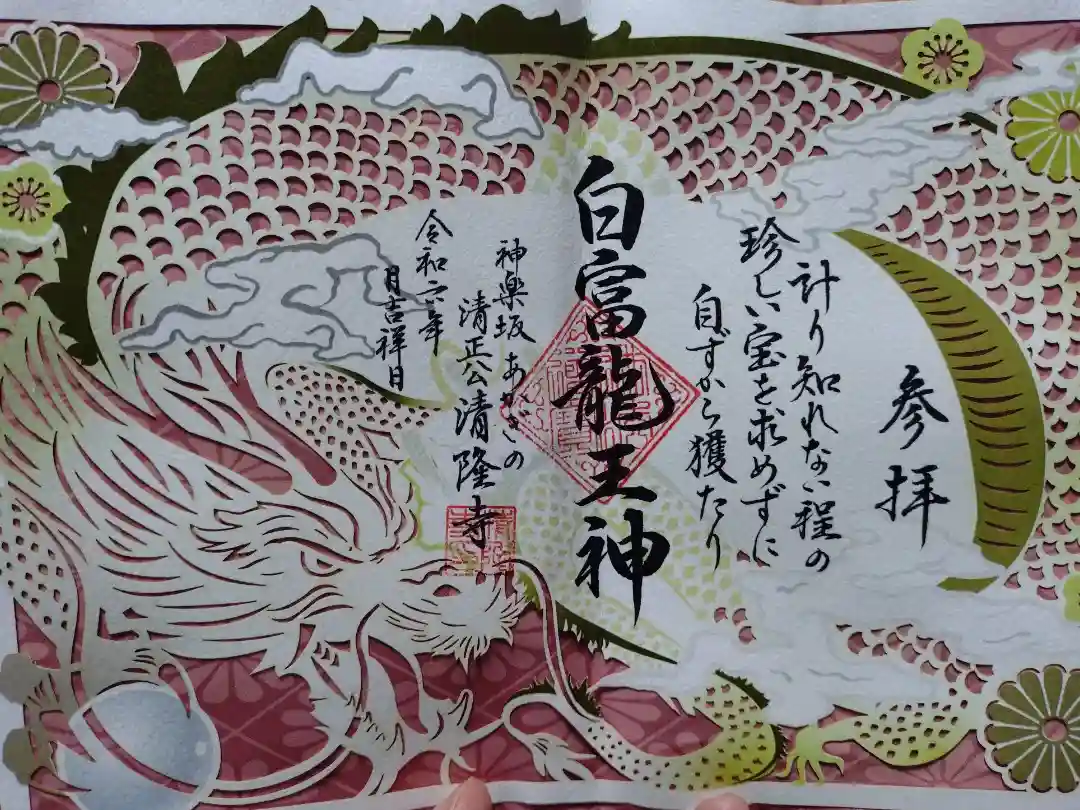 参拝
計り知れない程の
珍しい宝を求めずに
自ずから獲たり
白富龍王神
神楽坂 あかぎの
清正公清隆寺
令和六年
月吉祥日